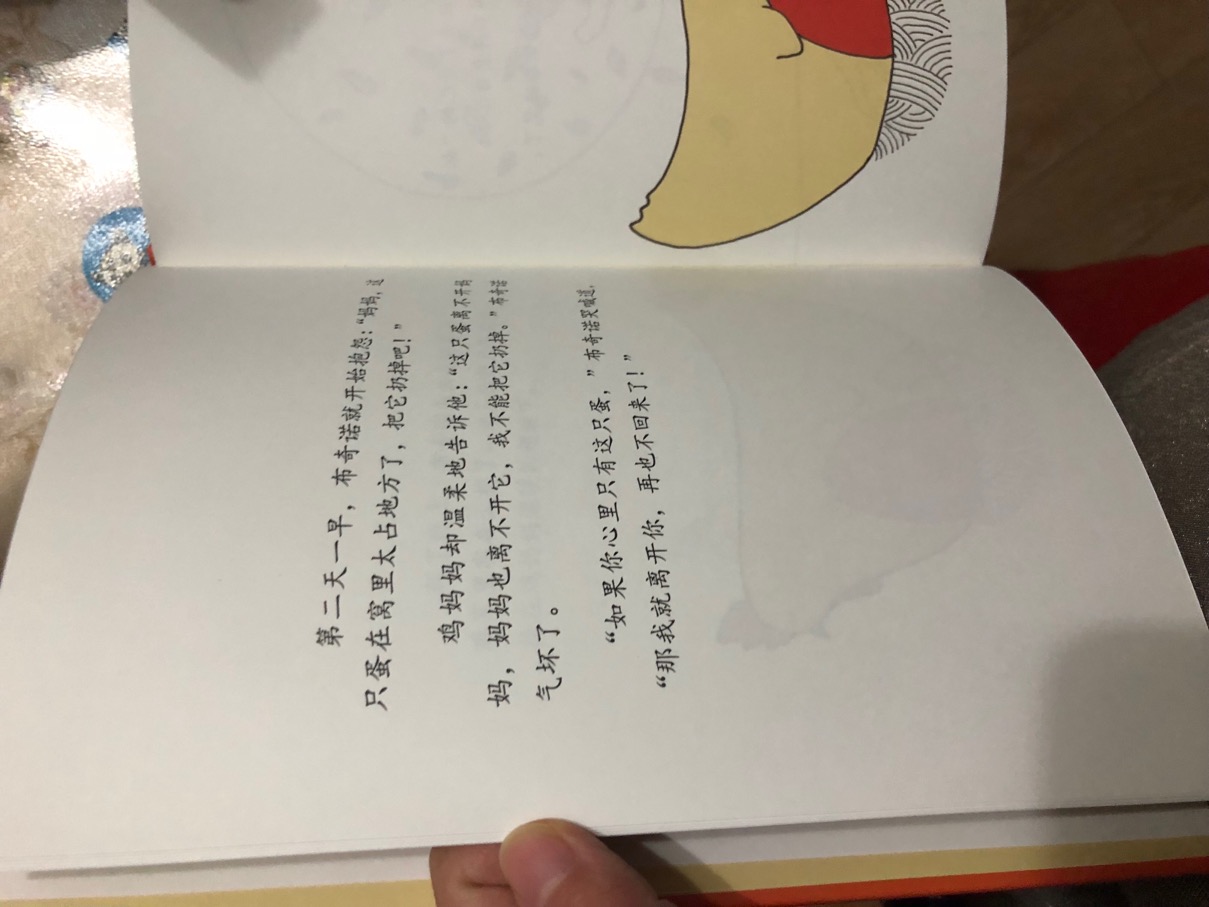 第二天一早，布奇诺就开始抱怨：“妈妈，这
只蛋在窝里太占地方了，把它扔掉吧！”
鸡妈妈却温柔地告诉他：“这只蛋离不开妈
妈，妈妈也离不开它，我不能把它扔掉。”布奇诺
气坏了。
“如果你心里只有这只蛋，”布奇诺哭喊道，
“那我就离开你，再也不回来了！”